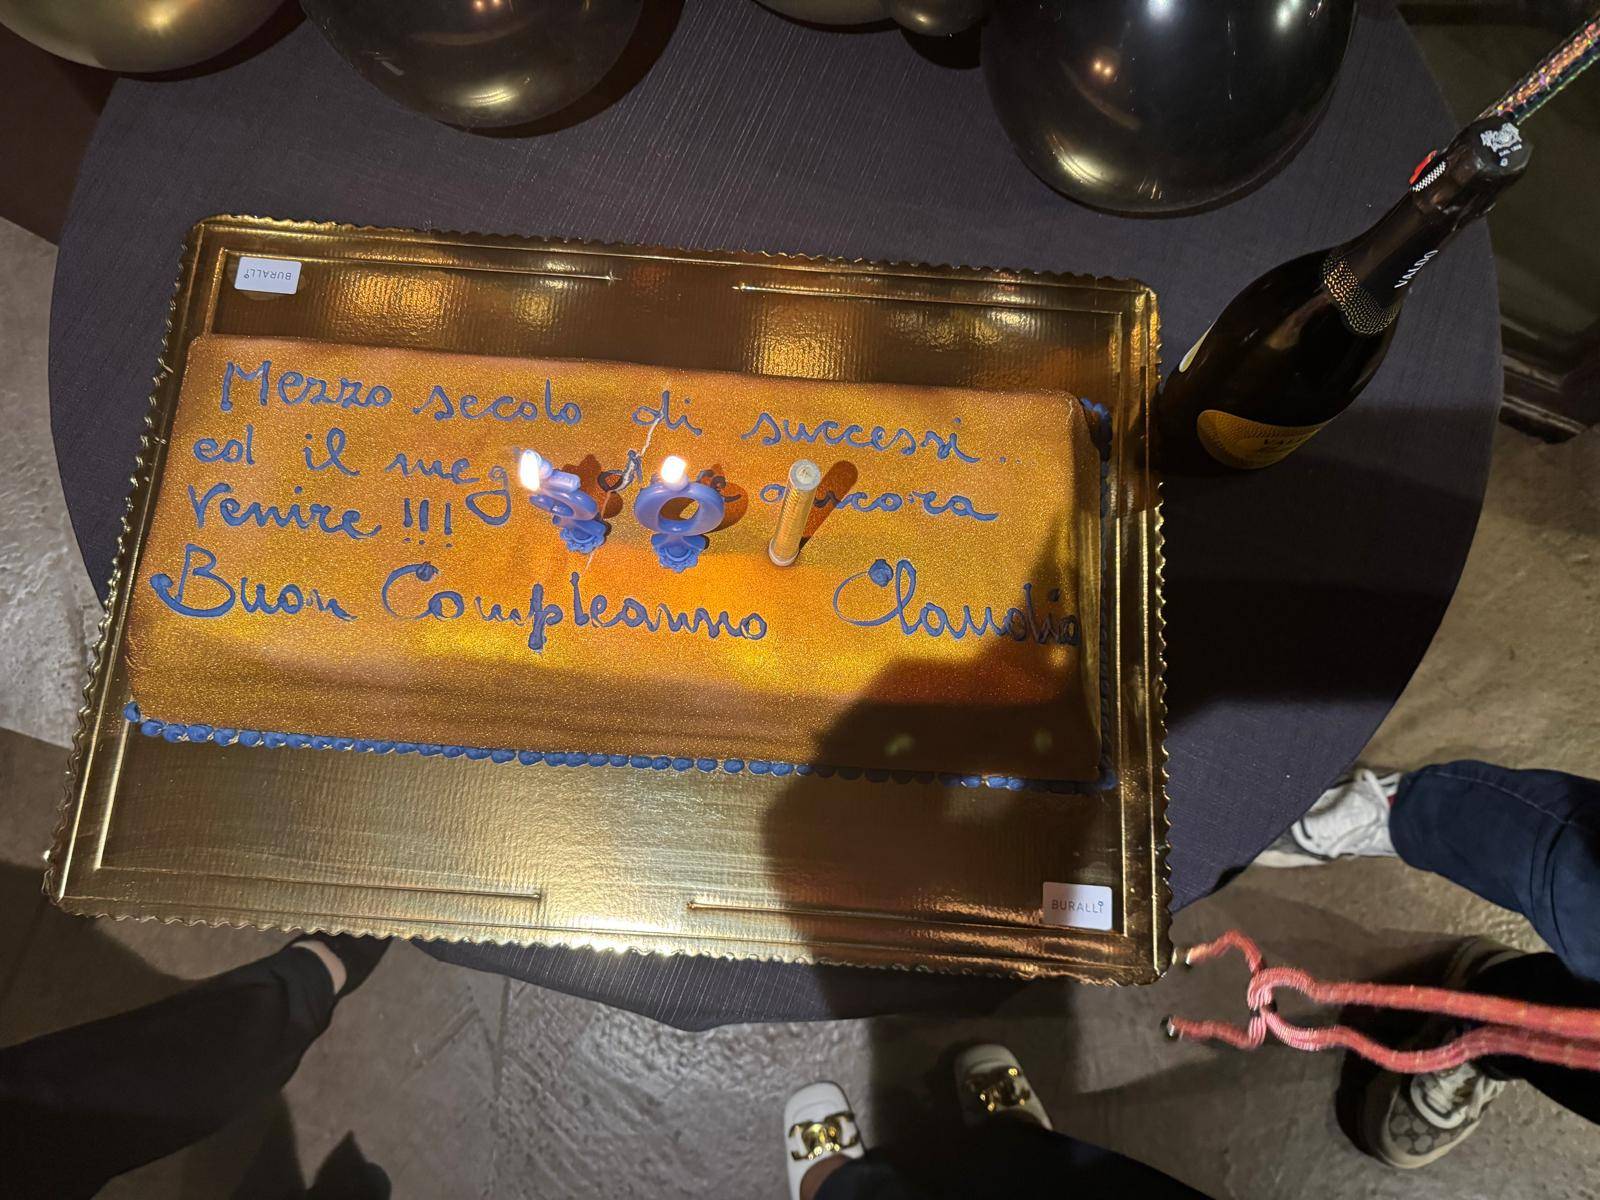 BURALLI
Mezzo secolo di successi..
ed il meg ancora
venire !!!
Buon Compleanno Claudio
50
VALDO
BURALLI